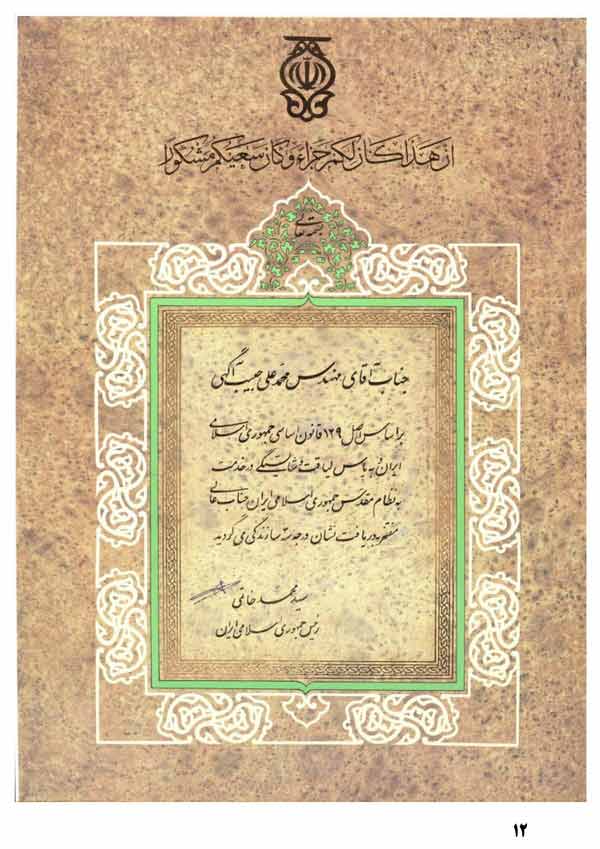 ان هذا كان لكم جزاء وكان سعيكم مشكورا
بسمه تعالی
جناب آقای مهندس محمد علی حبیب آگهی
بر اساس اصل ۱۲۹ قانون اساسی جمهوری اسلامی
ایران و به پاس لیاقت و شایستگی در خدمت
به نظام مقدس جمهوری اسلامی ایران جناب عالی
مفتخر به دریافت نشان درجه سه سازندگی می گردید
سید محمد خاتمی
رئیس جمهوری اسلامی ایران
۱۲